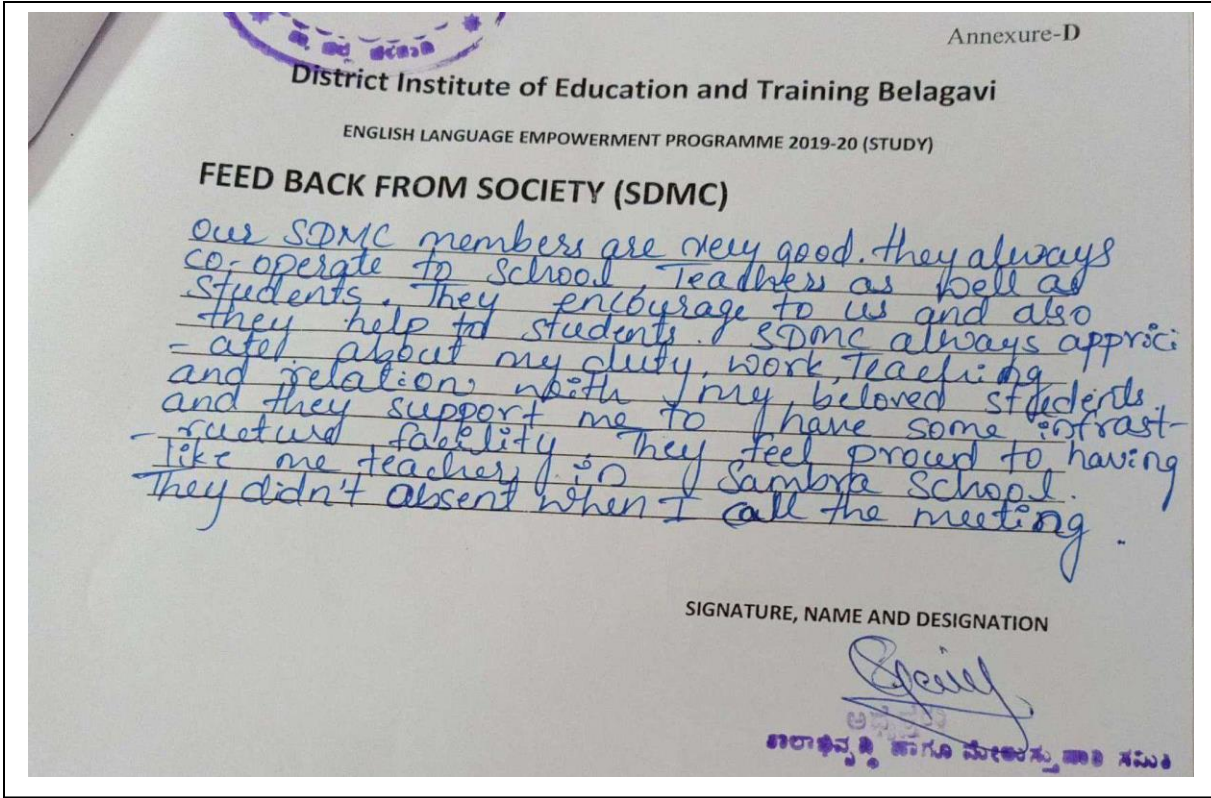 Annexure-D
District Institute of Education and Training Belagavi
ENGLISH LANGUAGE EMPOWERMENT PROGRAMME 2019-20 (STUDY)
FEED BACK FROM SOCIETY (SDMC)
Our SDMC members are very good. they always
co-operate to School, Teachers as well as
Students. They encourage to us and also
they help to students. SDMC always apprici
- ated about my duty, work, Teaching
and relation with my beloved students.
and they support me to have some infrast-
- ructure facility. They feel proud to having
like me teacher in Sambra School.
They didn't absent when I call the meeting.
SIGNATURE, NAME AND DESIGNATION
ಅಧ್ಯಕ್ಷರು
ಶಾಲಾಭಿವೃದ್ಧಿ ಹಾಗೂ ಮೇಲುಸ್ತುವಾರಿ ಸಮಿತಿ